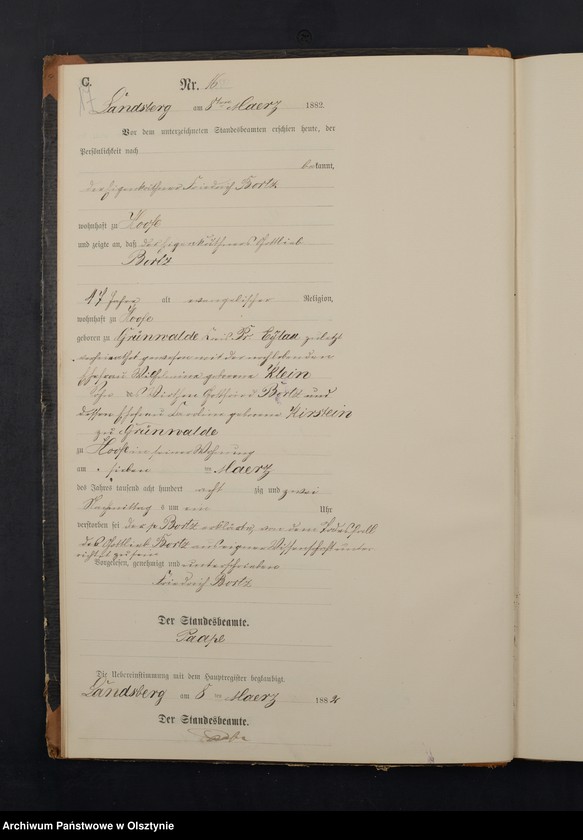 C.
Nr. 16
Landsberg am 8ten Maerz 1882.
Vor dem unterzeichneten Standesbeamten erschien heute, der
Persönlichkeit nach
bekannt,
der Eigenkäthner Friedrich Bortz
wohnhaft zu Hoofe
und zeigte an, daß der Eigenkäthner Gottlieb
Bortz
47 Jahre alt evangelischer Religion,
wohnhaft zu Hoofe
geboren zu Grünwalde Kreis Pr. Eylau zuletzt
verheirathet gewesen mit der
Ehefrau Wilhelmine geborene Klein
Sohn des Gottfried Bortz und
dessen Ehefrau geborene Kirstein
zu Grünwalde
zu Hoofe in seiner Wohnung
am sieben ten Maerz
des Jahres tausend acht hundert acht zig und zwei
Nachmittags um ein Uhr
verstorben sei der p. Bortz erklärte, von dem Todesfall
des Gottlieb Bortz aus eigener Wissenschaft unter
richtet zu sein
Vorgelesen, genehmigt und unterschrieben
Friedrich Bortz
Der Standesbeamte.
Paape
Die Uebereinstimmung mit dem Hauptregister beglaubigt.
Landsberg am 8 ten Maerz 1882
Der Standesbeamte.
Paape
Archiwum Państwowe w Olsztynie